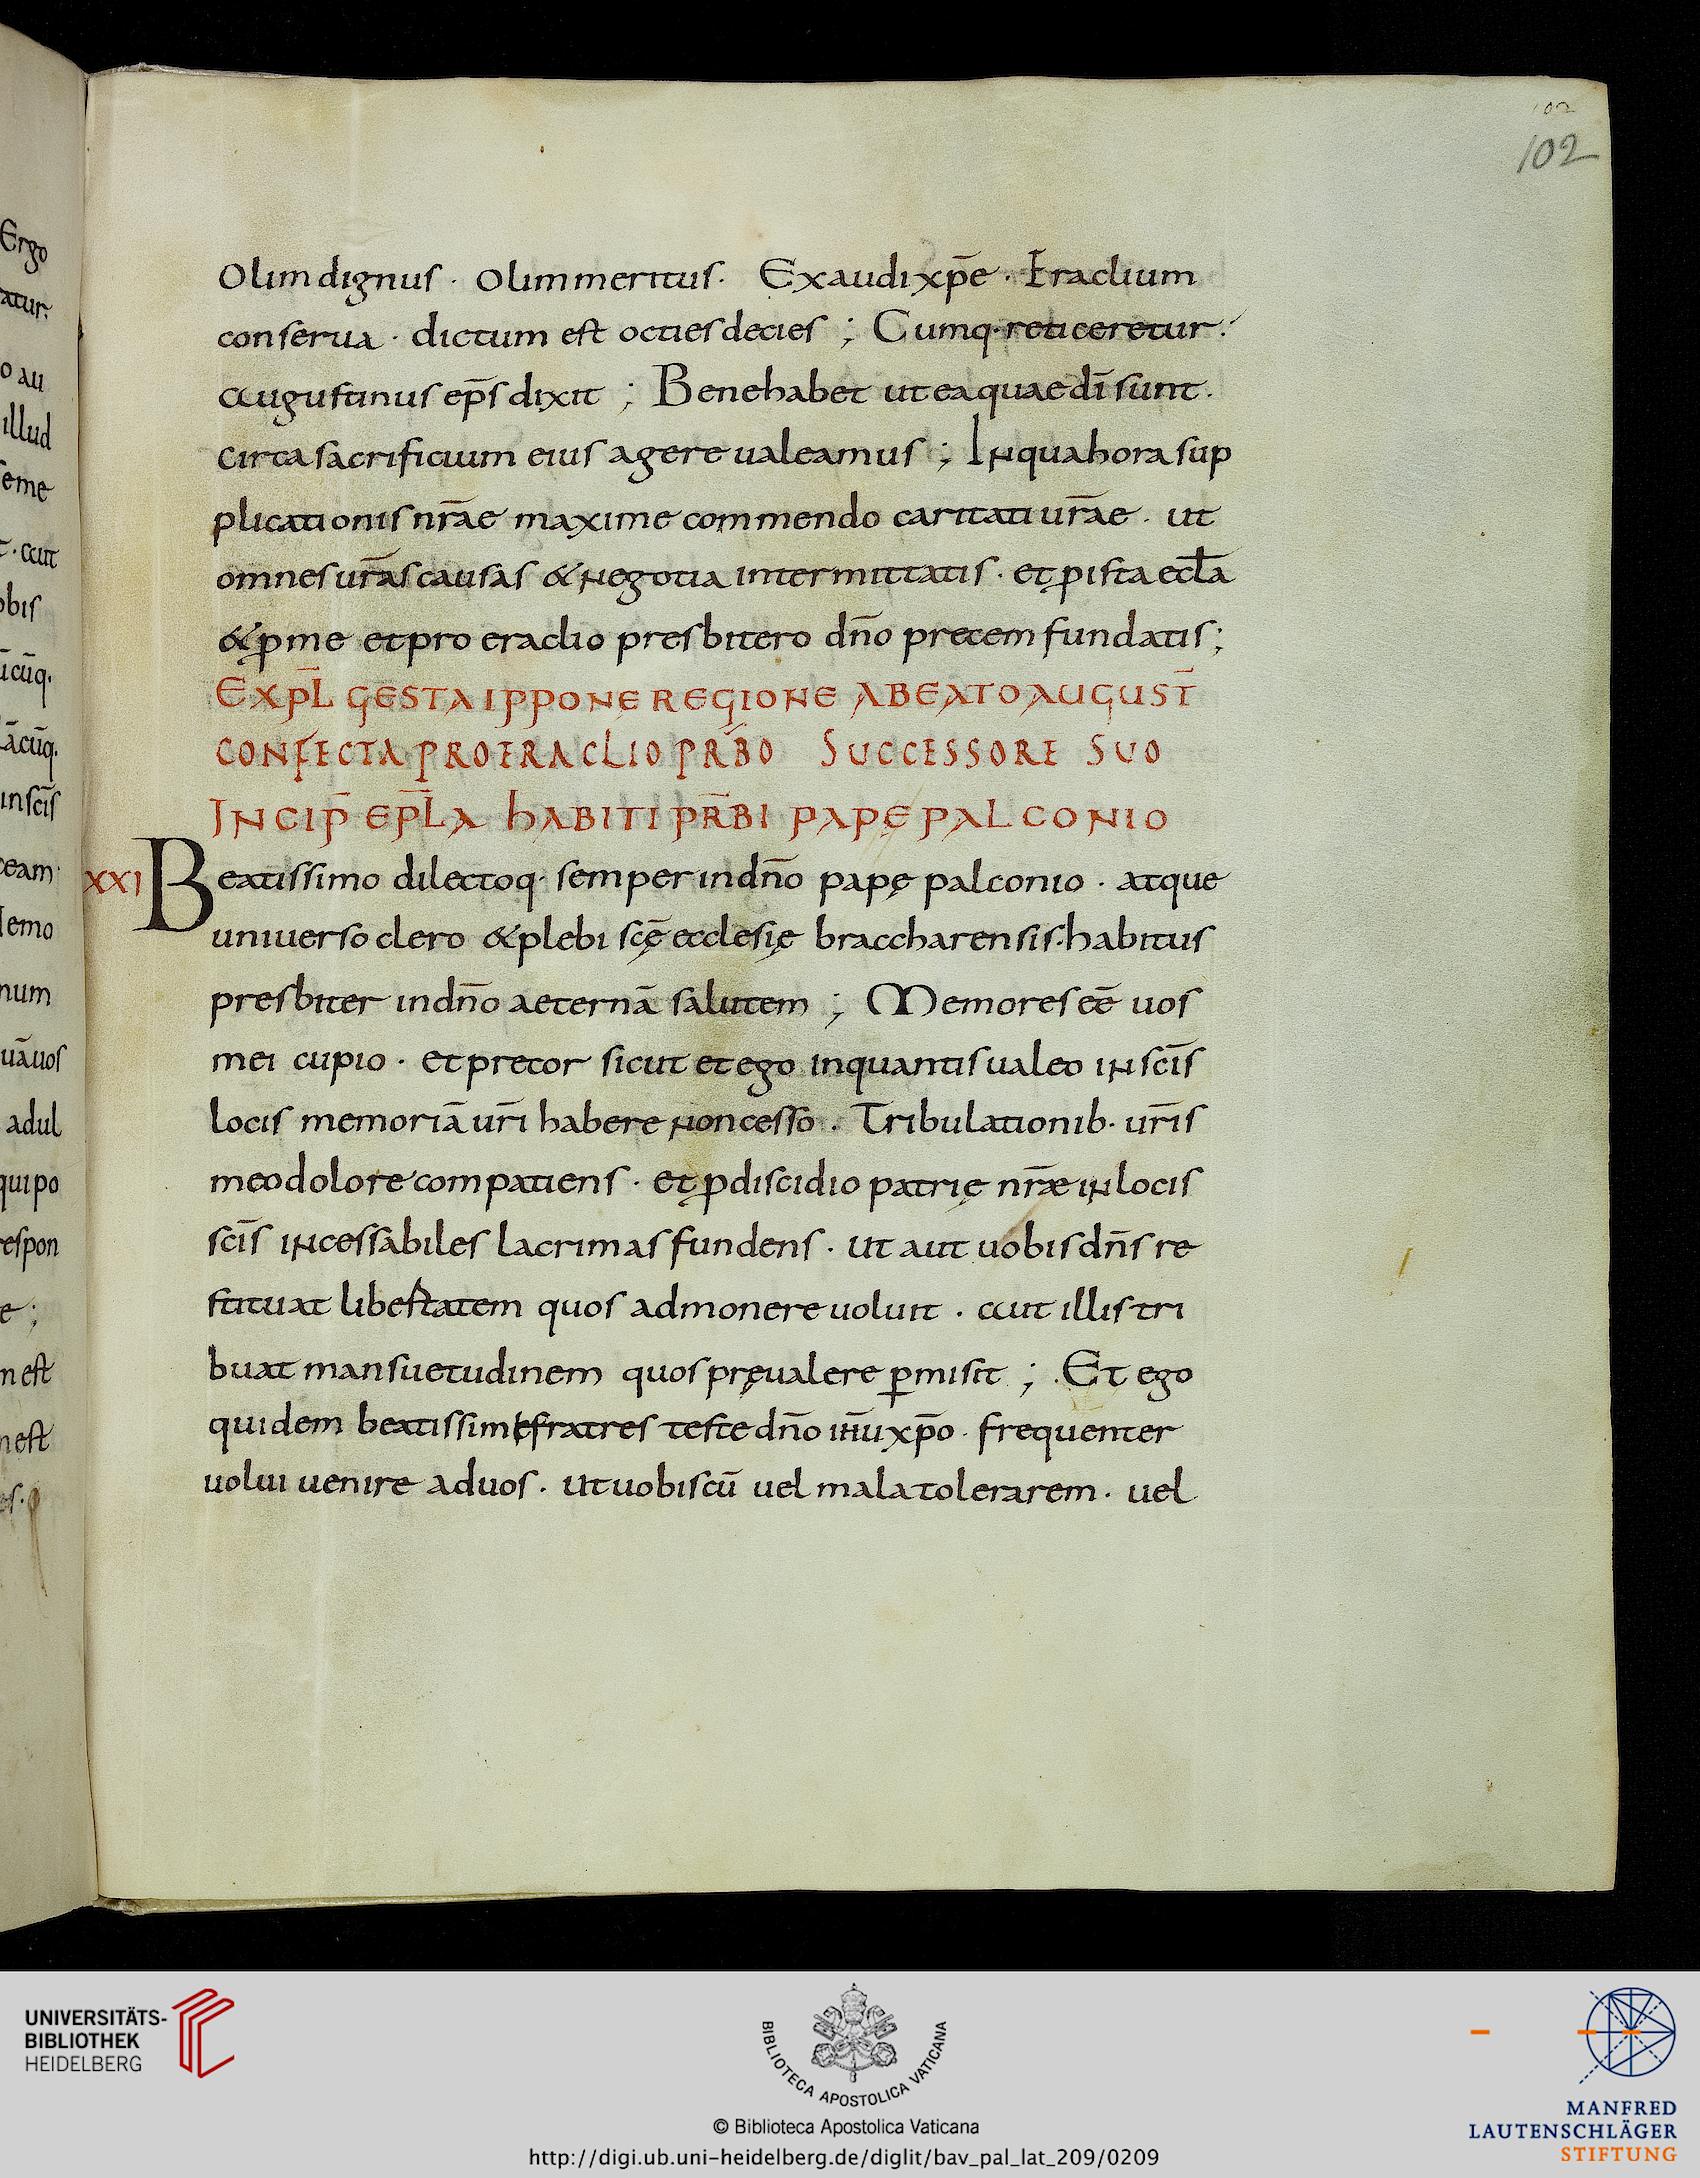 102
102
Olim dignus · Olim meritus · Exaudi xp̄e · Eraclium
conserua · dictum est octies decies ; Cumq· reticeretur ·
Augustinus ep̄s dixit ; Bene habet ut ea quae dī sunt ·
circa sacrificium eius agere ualeamus ; In qua hora sup
plicationis nr̄ae maxime commendo caritati ur̄ae · ut
omnes ur̄as causas & negotia intermittatis · et ꝑ ista eccl̄a
& ꝑ me et pro eraclio presbitero dn̄o precem fundatis ;
EXPL̄ GESTA IPPONE REGIONE A BEATO AUGUST̄
CONFECTA PRO ERACLIO PR̄BO SUCCESSORE SUO
INCIP̄ EPL̄A HABITI PR̄BI PAPĘ PALCONIO
XXI Beatissimo dilectoq· semper in dn̄o papę palconio · atque
uniuerso clero & plebi scę̄ ecclesię braccharensis · habitus
presbiter in dn̄o aeternā salutem ; Memores eē uos
mei cupio · et precor sicut et ego inquantis ualeo in sc̄is
locis memoriā ur̄i habere non cesso · Tribulationib· ur̄is
meo dolore compatiens · et ꝑ discidio patrię nr̄æ in locis
sc̄is incessabiles lacrimas fundens · ut aut uobis dn̄s re
stituat libestatem quos admonere uoluit · aut illis tri
buat mansuetudinem quos pręualere ꝑmisit ; Et ego
quidem beatissime fratres teste dn̄o ih̄u xp̄o · frequenter
uolui uenire ad uos · ut uobiscū uel mala tolerarem · uel
Ergo
atur;
o au
illud
seme
t · aut
obis
ūcūq·
ācūq·
in sc̄is
ceam·
Nemo
num
uā uos
adul
qui po
respon
e ;
n est
n est
es ·
UNIVERSITÄTS-
BIBLIOTHEK
HEIDELBERG
BIBLIOTECA APOSTOLICA VATICANA
© Biblioteca Apostolica Vaticana
http://digi.ub.uni-heidelberg.de/diglit/bav_pal_lat_209/0209
MANFRED
LAUTENSCHLÄGER
STIFTUNG